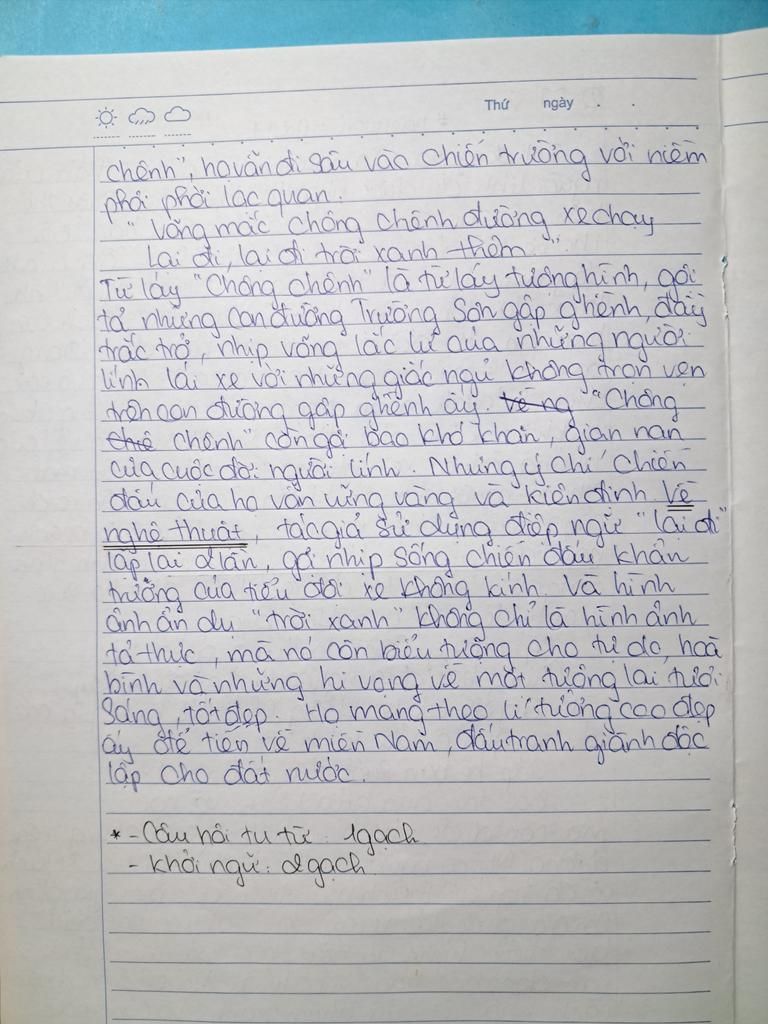 Thứ ngày . .
chênh", họ vẫn đi sâu vào chiến trường với niềm
phơi phới lạc quan.
" Võng mắc chông chênh đường xe chạy
Lại đi, lại đi trời xanh thêm. "
Từ láy "Chông chênh" là từ láy tượng hình, gợi
tả những con đường Trường Sơn gập ghềnh, đầy
trắc trở, nhịp võng lắc lư của những người
lính lái xe với những giấc ngủ không trọn vẹn
trên con đường gập ghềnh ấy. "Chông
chênh" còn gợi bao khó khăn, gian nan
của cuộc đời người lính. Nhưng ý chí chiến
đấu của họ vẫn vững vàng và kiên định. Về
nghệ thuật, tác giả sử dụng điệp ngữ "lại đi"
lặp lại 2 lần, gợi nhịp sống chiến đấu khẩn
trương của tiểu đội xe không kính. Và hình
ảnh ẩn dụ "trời xanh" không chỉ là hình ảnh
tả thực, mà nó còn biểu tượng cho tự do, hoà
bình và những hi vọng về một tương lai tươi
sáng, tốt đẹp. Họ mang theo lí tưởng cao đẹp
ấy để tiến về miền Nam, đấu tranh giành độc
lập cho đất nước.
* - Câu hỏi tu từ: 1 gạch
- Khởi ngữ: 2 gạch